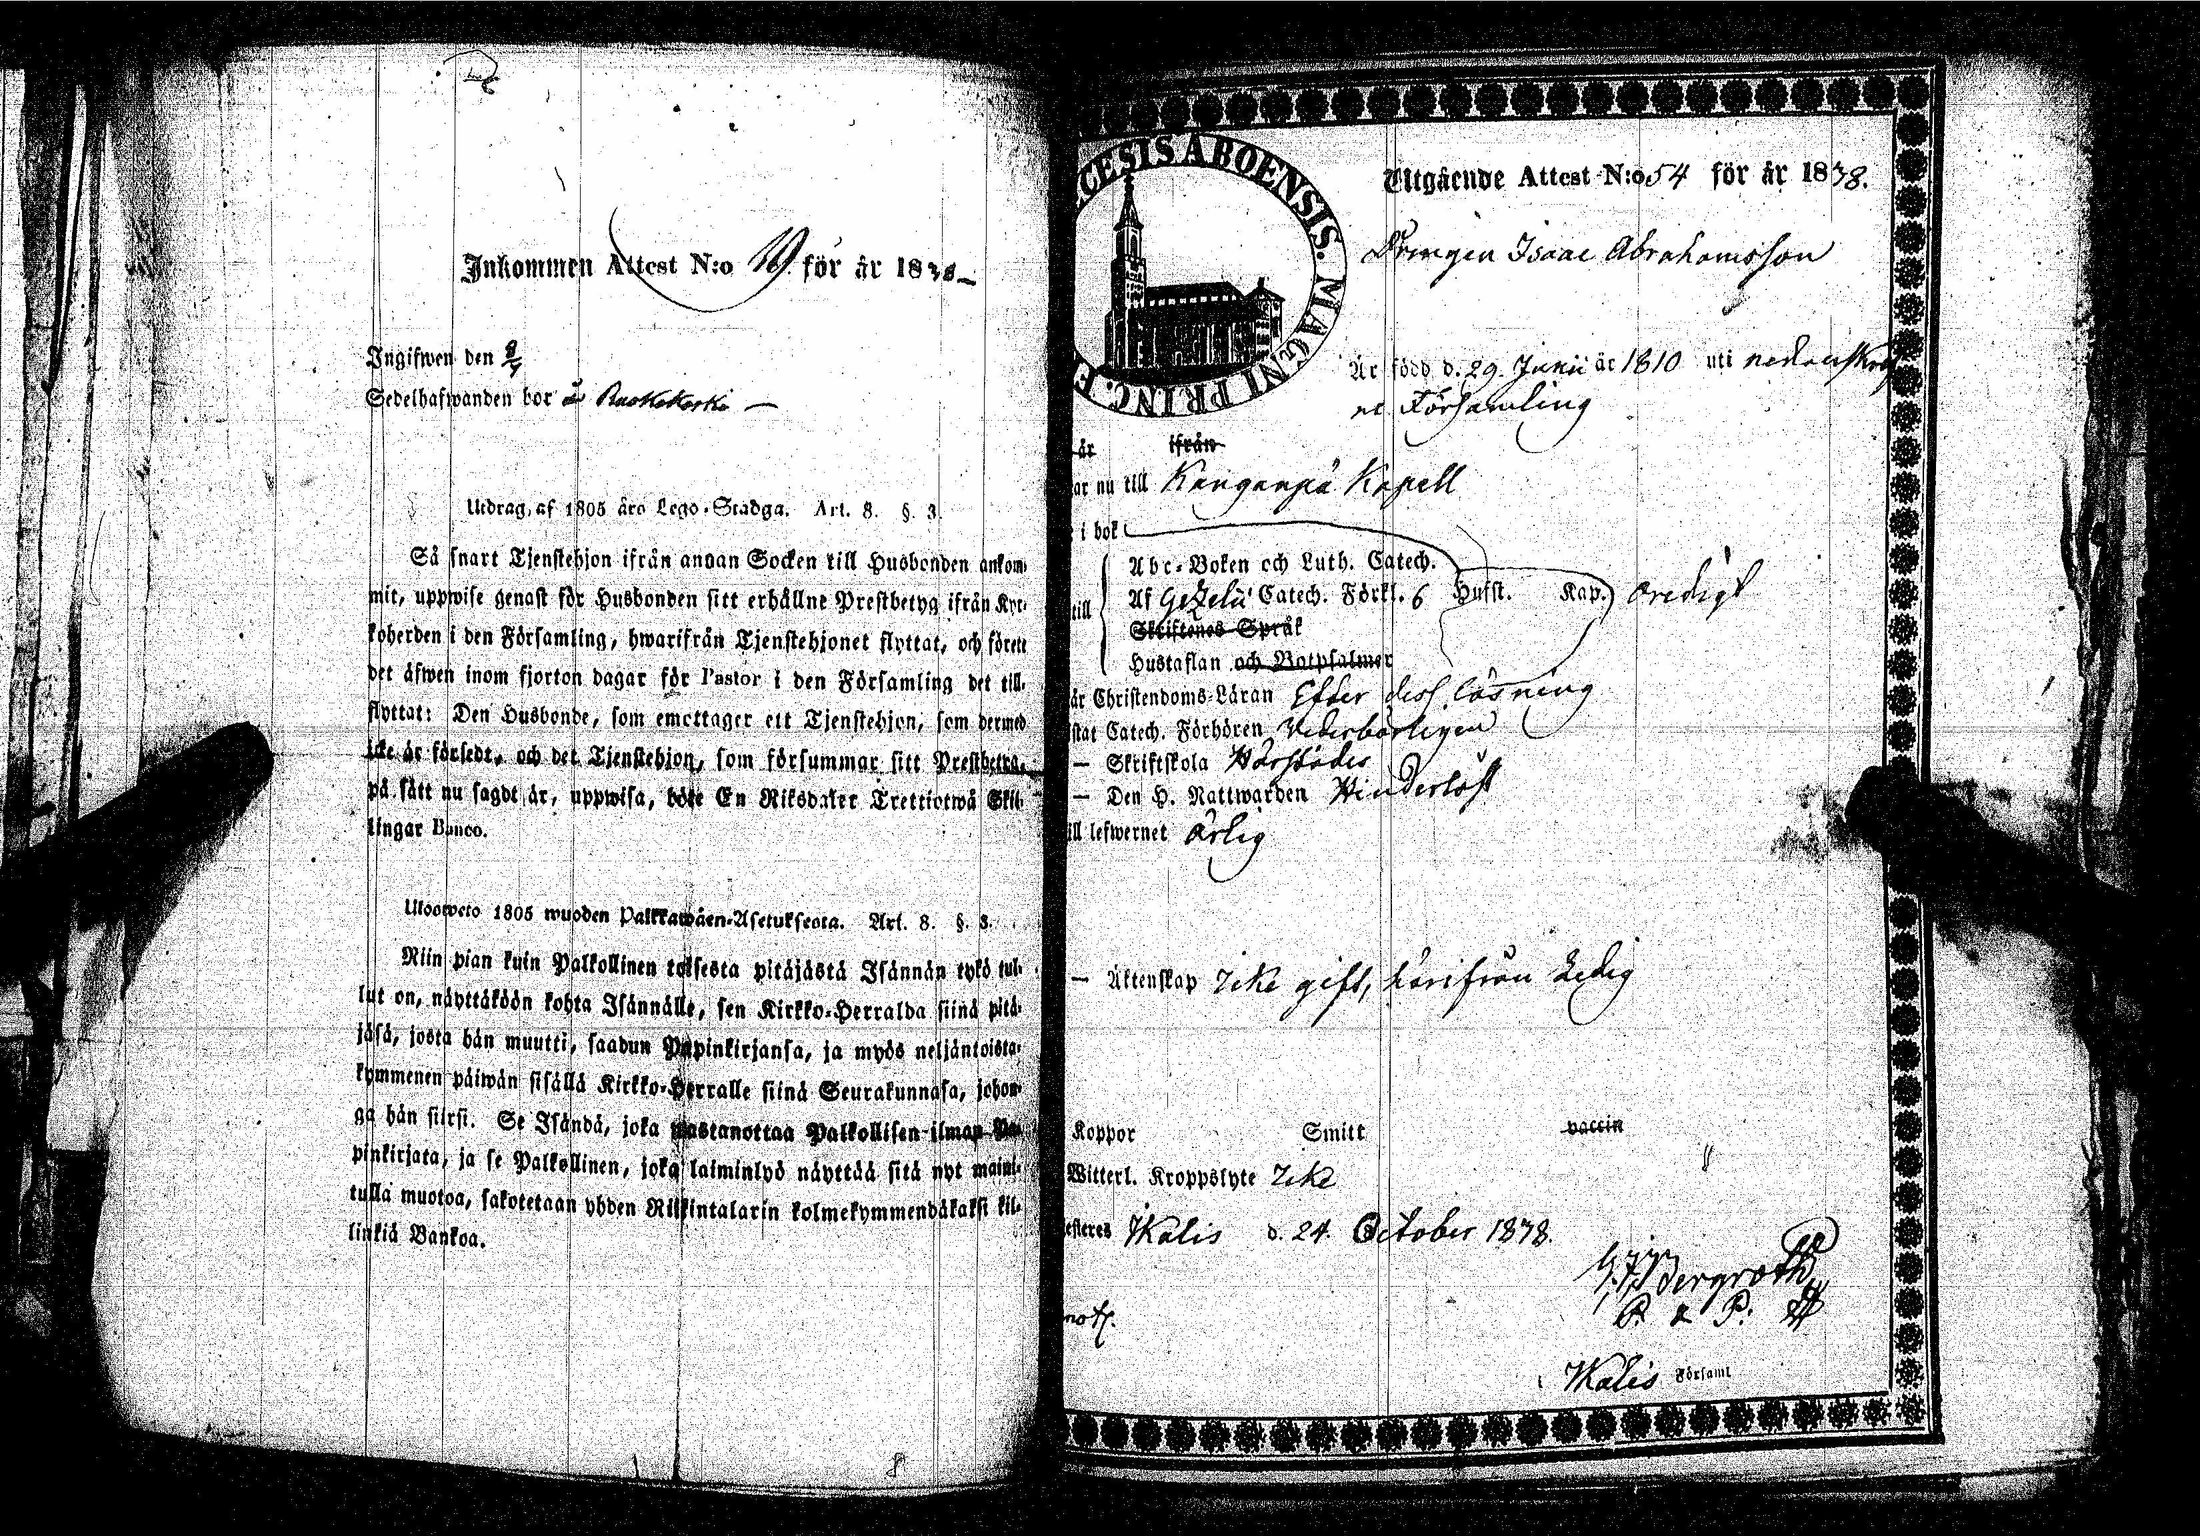 Inkommen Attest N:o 19. för år 1838
Ingifwen den
Sedelhafwanden bor å
Utdrag, af 1805 års Lego-Stadga. Art. 8. §. 3.
Så snart Tjenstehjon ifrån annan Socken till Husbonden ankom-
mit, uppwise genast för Husbonden sitt erhållne Prestbetyg ifrån Kyr-
koherden i den Församling, hwarifrån Tjenstehjonet flyttat, och förete
det äfwen inom fjorton dagar för Pastor i den Församling det till-
flyttat: Den Husbonde, som emottager ett Tjenstehjon, som dermed
icke är försedt, och det Tjenstehjon, som försummar sitt Prestbetyg,
på sätt nu sagdt är, uppwisa, böte En Riksdaler Trettiotwå Skil-
lingar Banco.
Ulosweto 1805 wuoden Palkkawäen-Asetuksesta. Art. 8. §. 3.
Niin pian kuin Palkollinen toisesta pitäjästä Isännän tykö tul-
lut on, näyttäköön kohta Isännälle, sen Kirkko-Herralda siinä pitä-
jäsä, josta hän muutti, saadun Papinkirjansa, ja myös neljäntoista-
kymmenen päiwän sisällä Kirkko-Herralle siinä Seurakunnasa, johon-
ga hän siirsi. Se Isändä, joka wastanottaa Palkollisen ilman Pa-
pinkirjata, ja se Palkollinen, joka laiminlyö näyttää sitä nyt maini-
tulla muotoa, sakotetaan yhden Riikintalarin kolmekymmendäkaksi kil-
linkiä Bankoa.
CESIS ABOENSIS. MAGNI PRINC. F
Utgående Attest N:o 54 för år 1838.
Drengen Isaac Abrahamsson
Är född d. 29. Junii år 1810 uti nedanskref
ne Församling
är ifrån
ar nu till Kanganpä Kapell
i bok
Abc-Boken och Luth. Catech.
till Af Gezelii Catech. Förkl. 6 Hufst. Kap. oredigt
Skriftenes Språk
Hustaflan och Botpsalmer
är Christendoms-Läran Efter dess läsning
stat Catech. Förhören Vederbörligen
— Skriftskola Härstädes
— Den H. Nattwarden Hinderlöst
ill lefwernet ärlig
— Äktenskap Icke gift, härifrån Ledig
Koppor Smitt vaccin
Witterl. Kroppslyte Icke
esteres Walis d. 24. October 1838.
Bergroth
P.
not.
Walis Församl